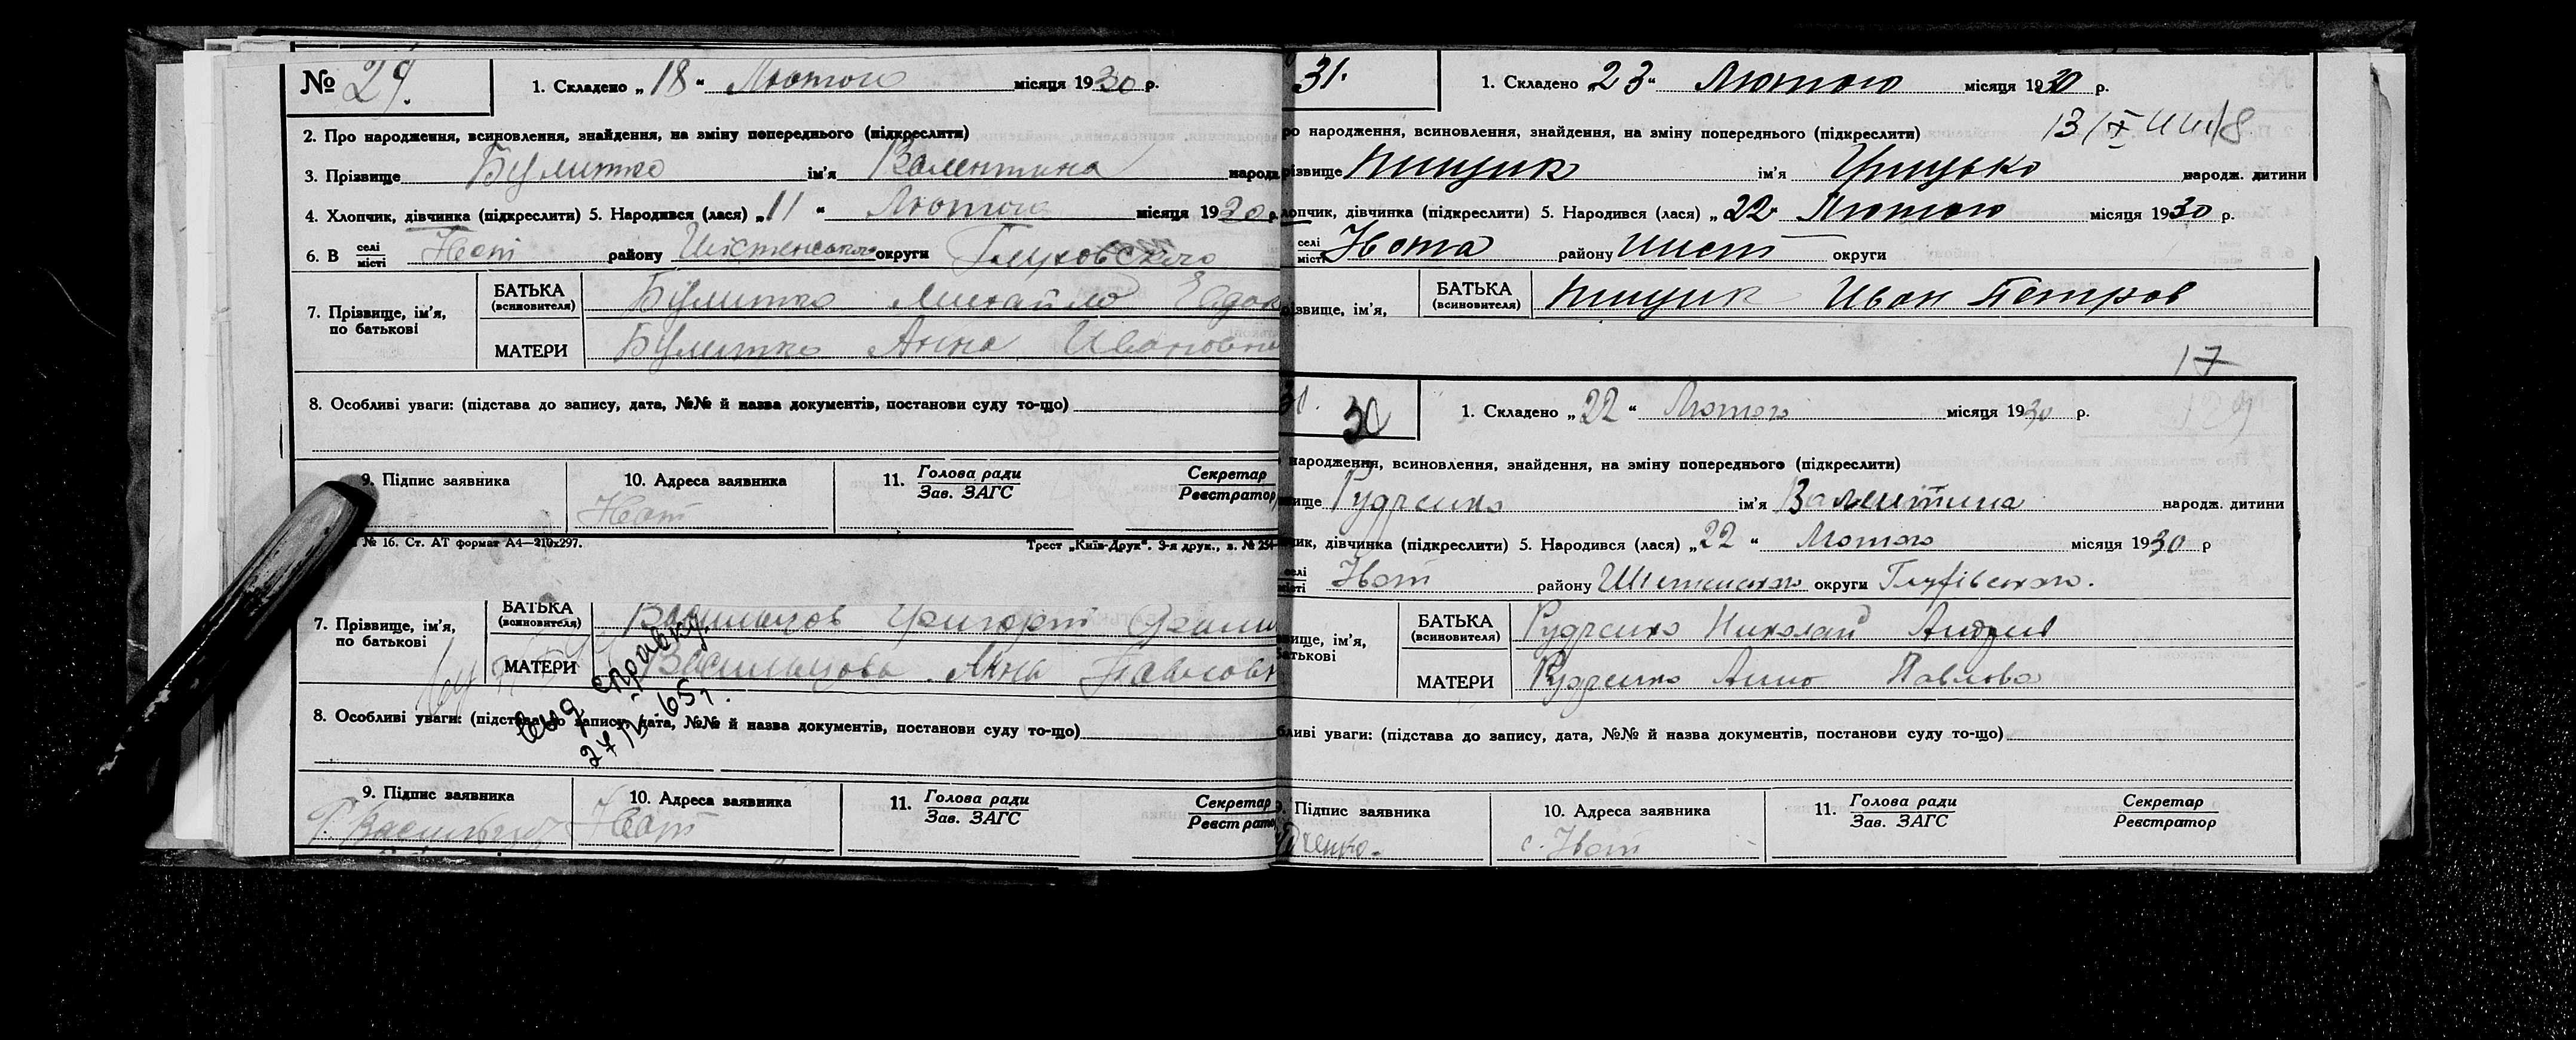 № 29. 1. Складено „18“ Лютого місяця 1930 р.
2. Про народження, всиновлення, знайдення, на зміну попереднього (підкреслити)
3. Прізвище Булитко ім'я Валентина народ
4. Хлопчик, дівчинка (підкреслити) 5. Народився (лася) „11“ Лютого місяця 1930 р.
6. В селі/місті Івот району округи Глуховського
7. Прізвище, ім'я, по батькові
БАТЬКА (всиновителя) Булитко Михайло Евдок
МАТЕРИ Булитко Анна Ивановна
8. Особливі уваги: (підстава до запису, дата, №№ й назва документів, постанови суду то-що)
9. Підпис заявника 10. Адреса заявника 11. Голова ради/Зав. ЗАГС Секретар/Реєстратор
Івот
№ 16. Ст. АТ формат А4—210х297. Трест „Київ-Друк“. 3-я друк., з. № 254
7. Прізвище, ім'я, по батькові
БАТЬКА (всиновителя) Васильцов Григорий
МАТЕРИ Васильцова Анна Павловн
справку
27/ 65
8. Особливі уваги: (підстава до запису, дата, №№ й назва документів, постанови суду то-що)
9. Підпис заявника 10. Адреса заявника 11. Голова ради/Зав. ЗАГС Секретар/Реєстрато
Г. Васильцов Івот
31. 1. Складено „23“ Лютого місяця 1930 р.
ро народження, всиновлення, знайдення, на зміну попереднього (підкреслити)
різвище Пищик ім'я Грицько народж. дитини
лопчик, дівчинка (підкреслити) 5. Народився (лася) „22 Лютого місяця 1930 р.
селі/місті Ивота району округи
різвище, ім'я,
БАТЬКА (всиновителя) Пищик Иван Петров
17
30 1. Складено „22“ Лютого місяця 1930 р.
народження, всиновлення, знайдення, на зміну попереднього (підкреслити)
вище Рудченко ім'я Валентина народж. дитини
чик, дівчинка (підкреслити) 5. Народився (лася) „22“ Лютого місяця 1930 р
селі/місті Івот району округи Глухівського.
вище, ім'я, батькові
БАТЬКА (всиновителя) Рудченко Николай Андрив
МАТЕРИ Рудченко Анна Павлова
бливі уваги: (підстава до запису, дата, №№ й назва документів, постанови суду то-що)
Підпис заявника 10. Адреса заявника 11. Голова ради/Зав. ЗАГС Секретар/Реєстратор
дченко. с. Івот